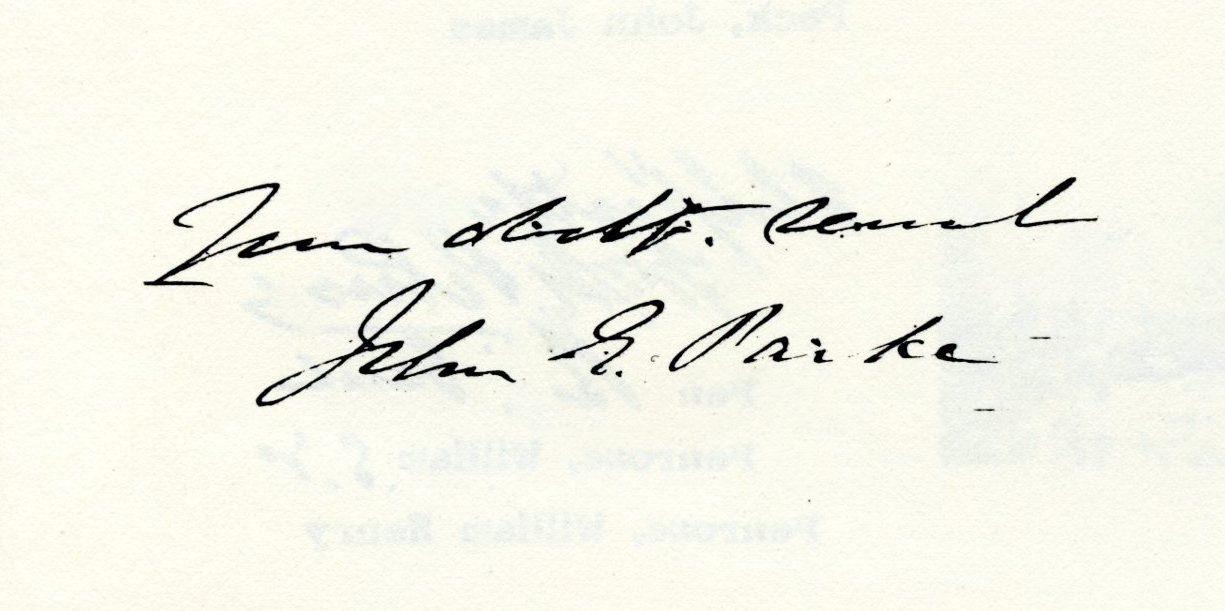 Your obedt. servant
John G. Parke